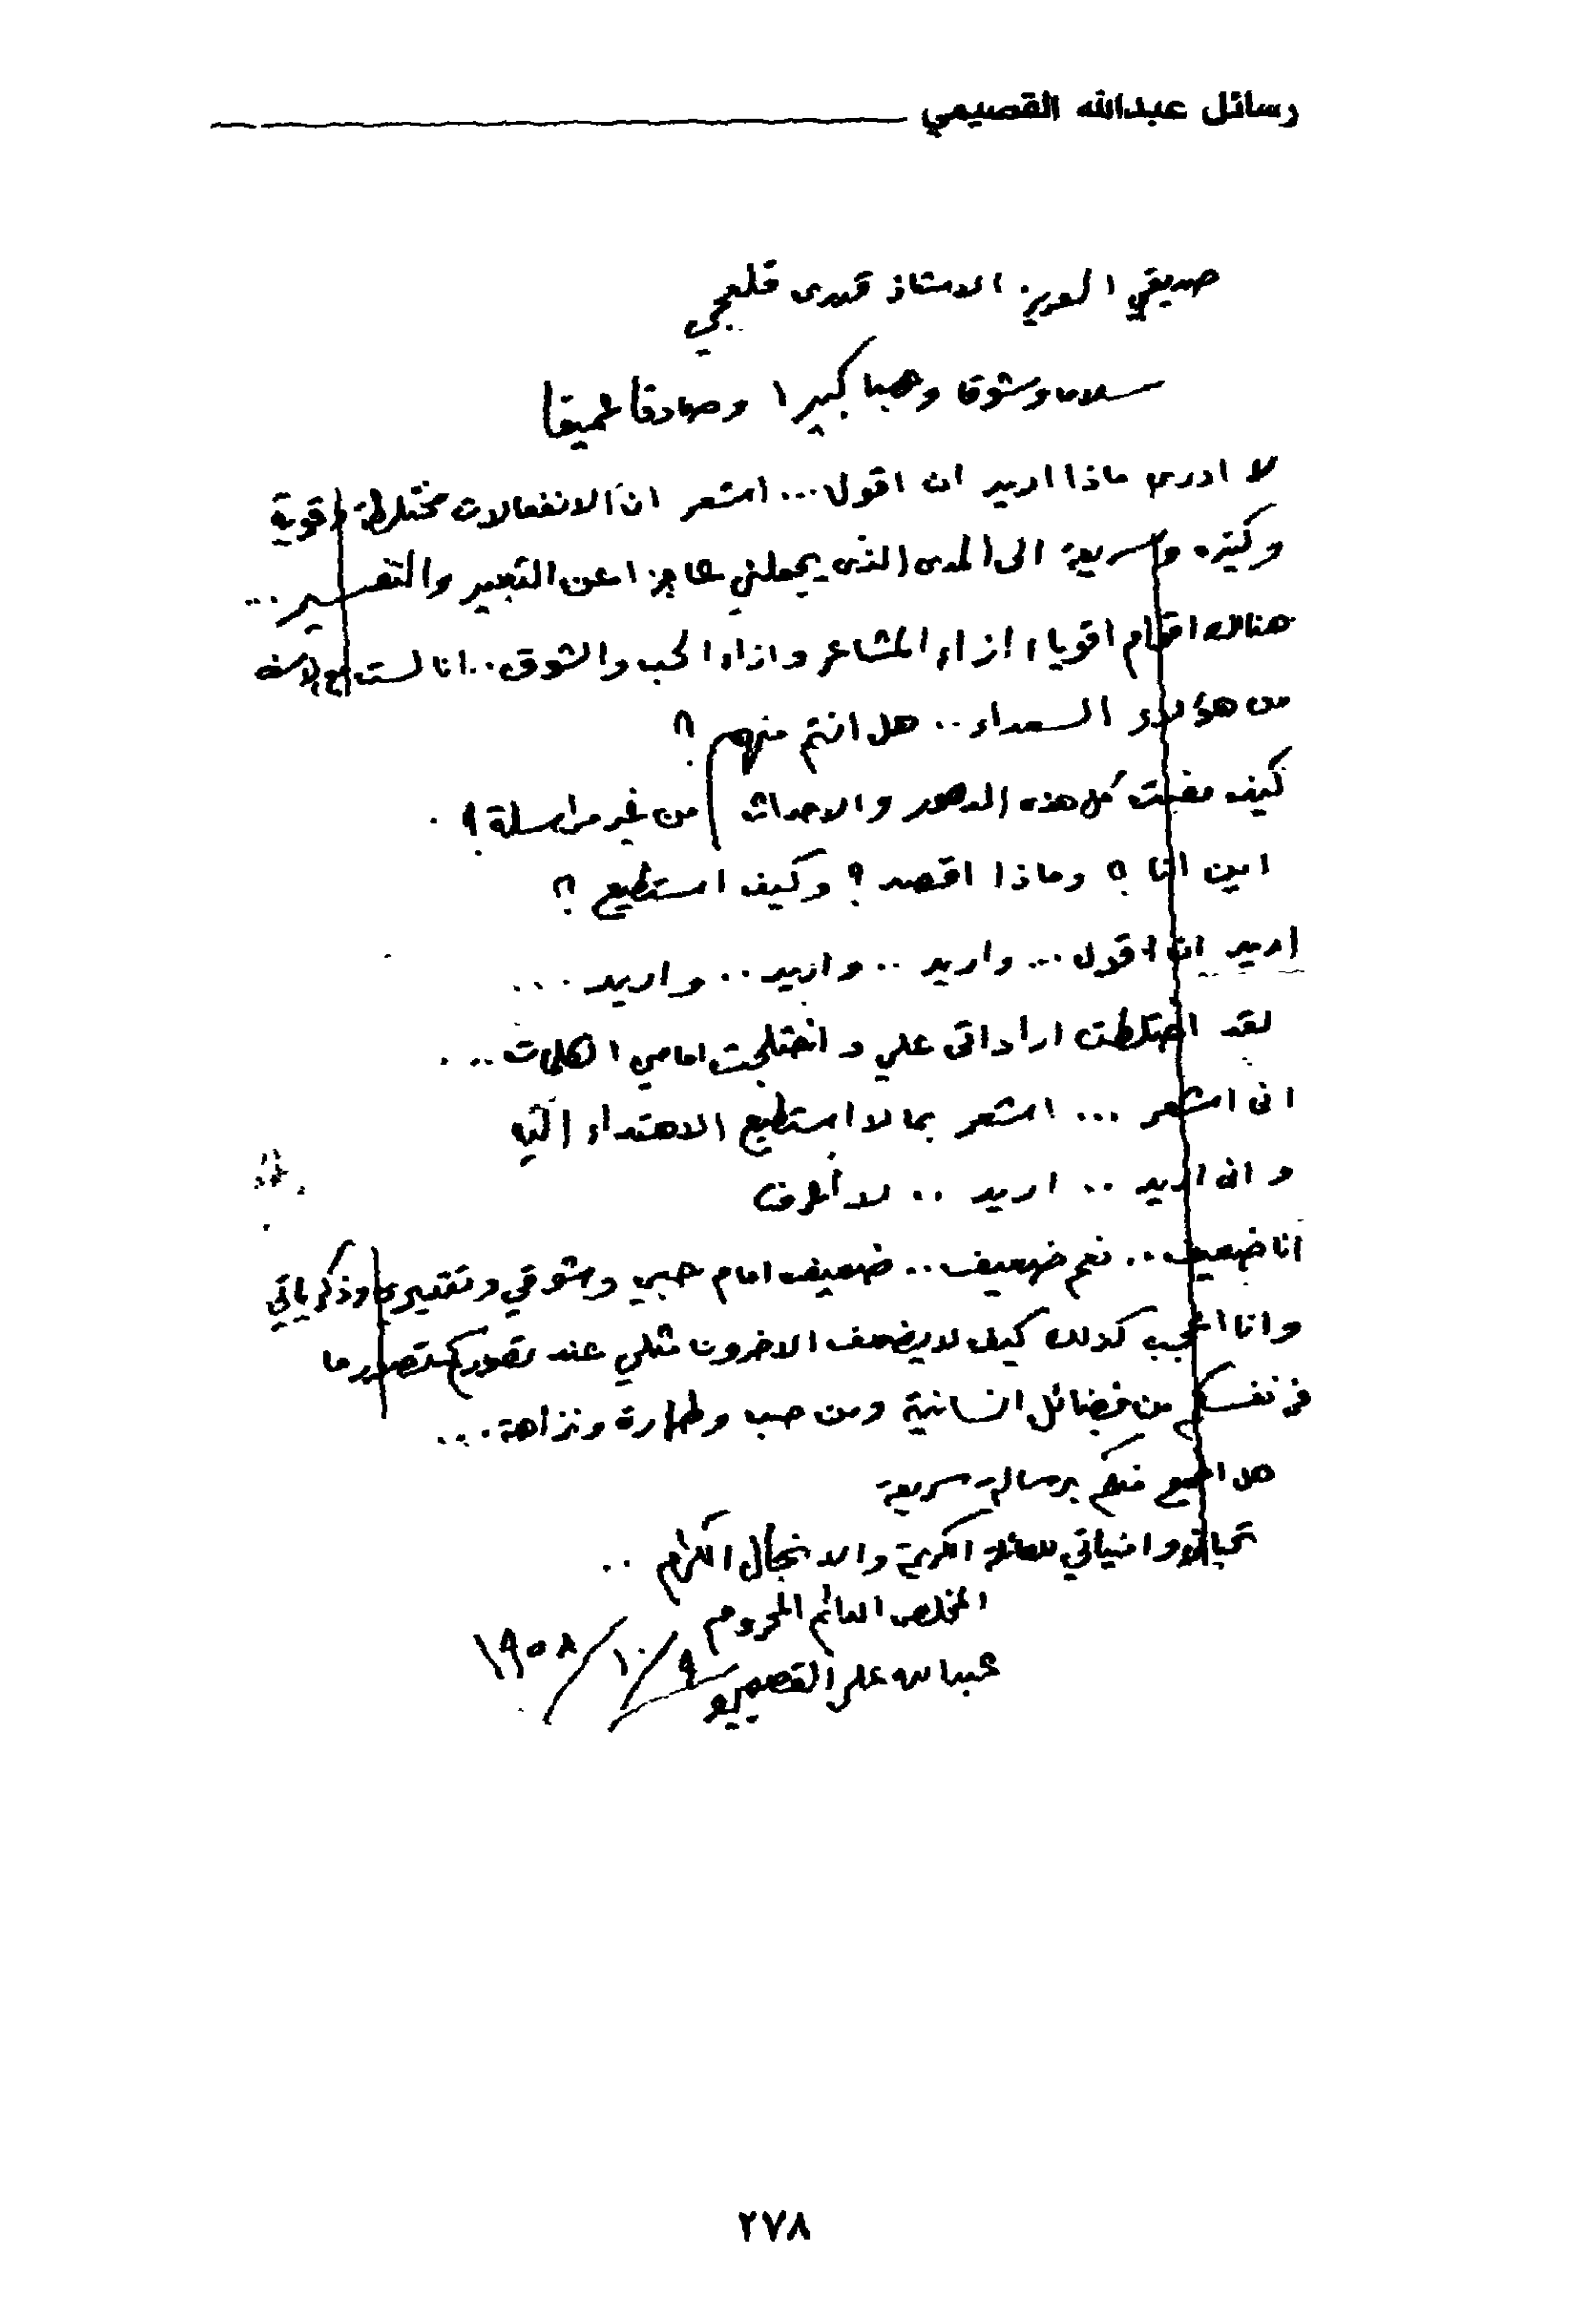 رسائل عبدالله القصيمي
صديقي العزيز الاستاذ قدرى قلعجي
سلاما وشوقا وحبا كبيرا وصادقا عميقا
لا ادرى ماذا اريد ان اقول... اشعر ان الانفعالات مختلطة وقوية
وكثيره وسريعة الى المدى الذى يجعلني عاجزا عن التعبير والتفسير...
هنالك اقوام اقوياء ازاء المشاعر وازاء الحب والشوق.. انا لست مع الاسف
من هؤلاء السعداء.. هل انتم منهم؟
كيف مضت كل هذه الدهور والاحداث من غير مراسلة؟
اين انا؟ وماذا اقصد؟ وكيف استطيع؟
اريد ان اقول... واريد.. واريد.. واريد...
لقد اختلطت اراداتى علي واختلجت امامي الكلمات...
انى اشعر... اشعر بما لا استطيع الاهتداء اليه
وانى اريد.. اريد.. لا اعرف
انا ضعيف.. نعم ضعيف.. ضعيف امام حبي وشوقي وتقديرى وذكرياتي
وانا اعجب كذلك كيف لا يضعف الاخرون مثلي عند تصوركم وتصور ما
في نفسكم من فضائل انسانية ومن حب وطهارة ونزاهة...
هل اطمع منكم برسالة سريعة
تحياتى وامنياتي للعائلة الكريمة والانجال الكرام..
المخلص الهائم المحروم
عبدالله على القصيمي ٩/١٠/١٩٥٨
٢٧٨